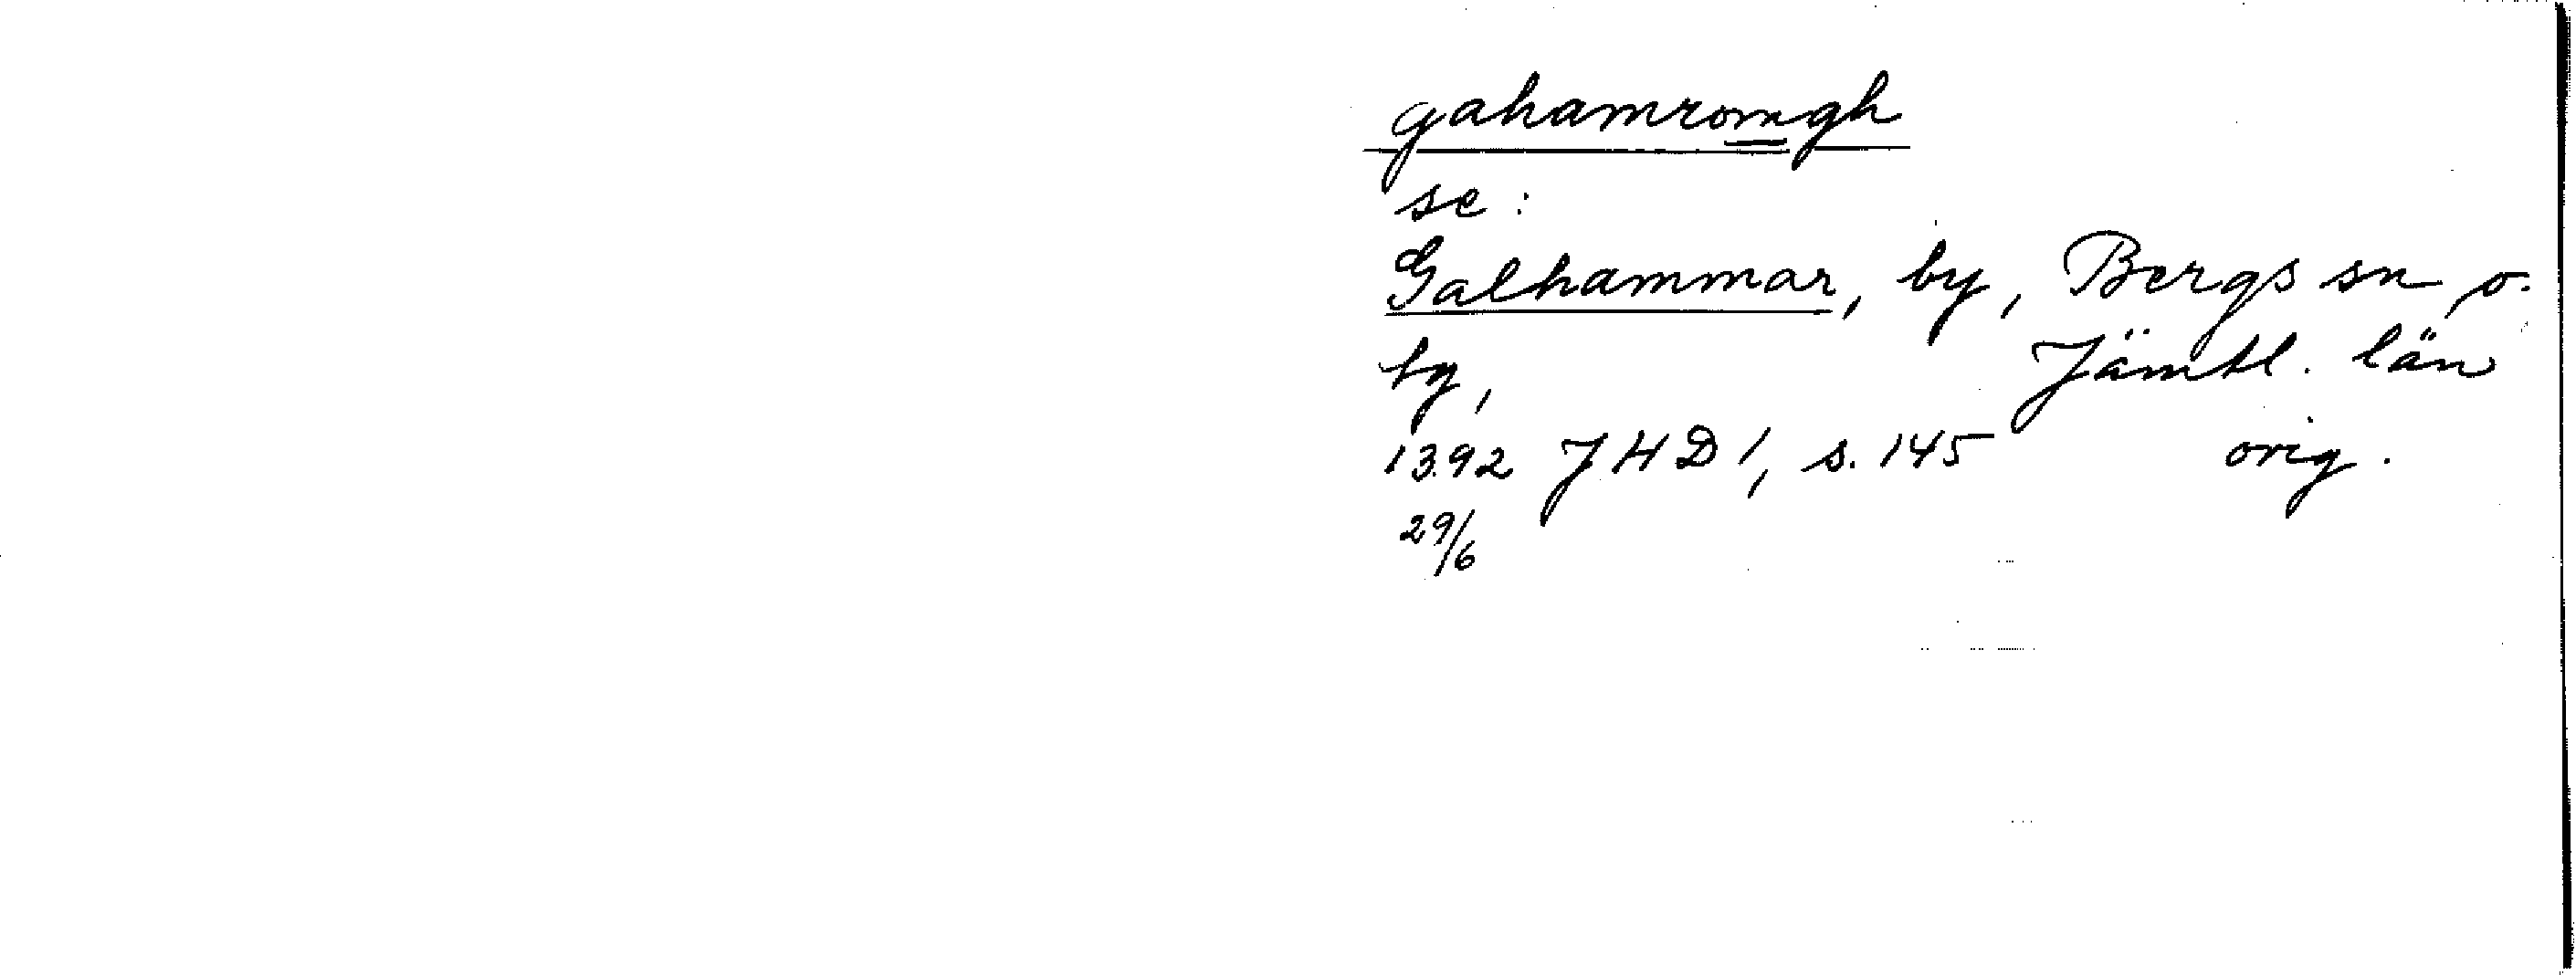 gahamromgh
se:
Galhammar, by, Bergs sn o.
tg, Jämtl. län
1392 JHD 1, s. 145 orig.
29/6